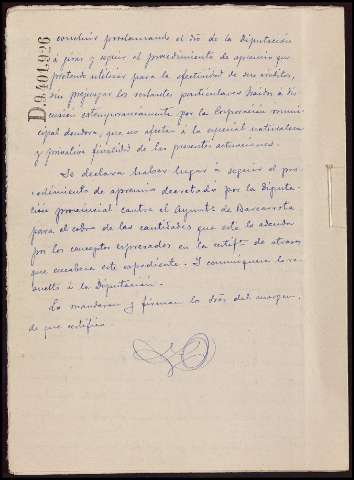 D.9.401.926
concluir proclamando el dro de la Diputación
á iniciar y seguir el procedimiento de apremio que
pretende utilizar para la efectividad de sus créditos,
sin prejuzgar los restantes particulares traidos á dis-
cusion extemporaneamente por la Corporación muni-
cipal deudora, que no afectan á la especial naturaleza
y privativa finalidad de las presentes actuaciones.
Se declara haber lugar á seguir el pro-
cedimiento de apremio decretado por la Diputa-
ción provincial contra el Ayuntº de Barcarrota
para el cobro de las cantidades que este le adeuda
por los conceptos expresados en la certifon de atrasos
que encabeza este expediente. Y comuniquese lo re-
suelto á la Diputación.
Lo mandaron y firman los Sres del margen,
de que certifico.